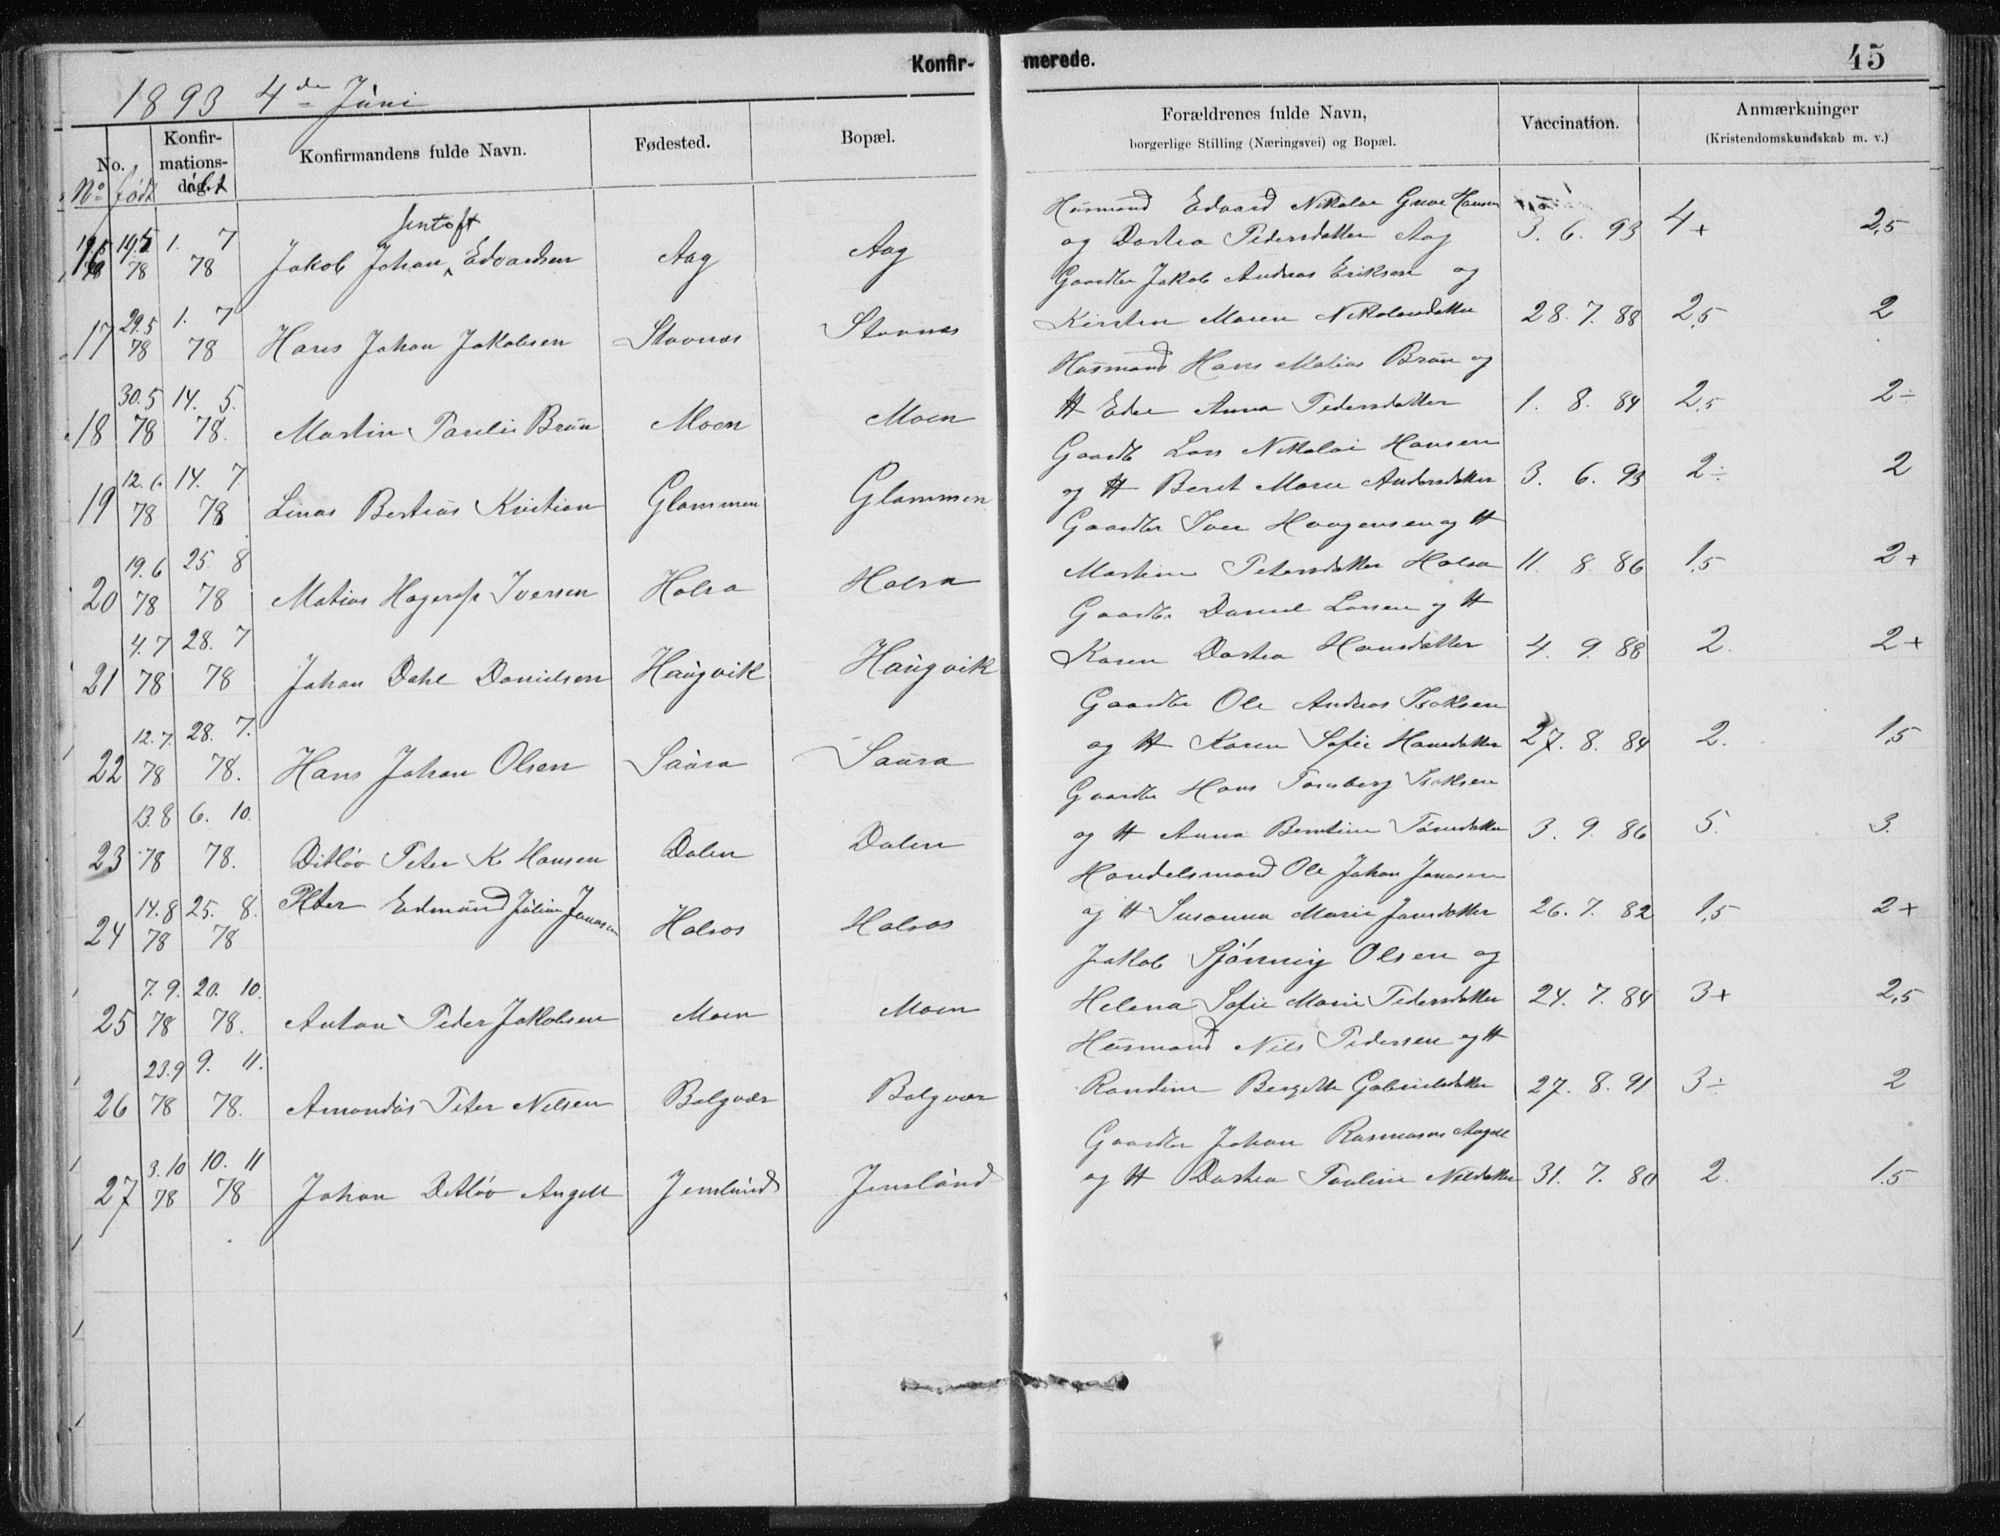 Konfir- merede. 45
1893 4de Juni
No. Konfir-mations-dag. Konfirmandens fulde Navn. Fødested. Bopæl. Forældrenes fulde Navn, borgerlige Stilling (Næringsvei) og Bopæl. Vaccination. Anmærkninger (Kristendomskundskab m. v.)
No født døbt
Sentoft Husmand Edvard Nikolai Hansen
16 19.5 78 1. 7 78 Jakob Johan Edvardsen Aag Aag og Dortea Pedersdatter Aag 3. 6. 93 4+ 2,5
Gaardbr Jakob Andreas Eriksen og
17 29.5 78 1. 7 78 Hans Johan Jakobsen Stavnes Stavnes Kirsten Maren Nikolaidatter 28. 7. 88 2,5 2
Husmand Hans Matias Brun og
18 30.5 78 14. 5. 78. Martin Paulii Brun Moen Moen H Edel Anna Pedersdatter 1. 8. 84 2,5 2÷
Gaardb Lars Nikolai Hansen
19 12. 6 78 14. 7. 78 Linas Bertius Kristian Glammen Glammen og H Beret Maria Andersdatter 3. 6. 93 2÷ 2
Gaardbr Iver Haagensen og H
20 19.6 78 25. 8 78 Matias Hagerup Iversen Halsa Halsa Martine Petersdatter Halsa 11. 8. 86 1,5 2+
Gaardbr Daniel Larsen og H
21 4.7 78 28. 7 78 Johan Dahl Danielsen Haugvik Haugvik Karen Dortea Hansdatter 4. 9. 88 2. 2+
Gaardbr Ole Andreas Isaksen
22 12.7. 78 28. 7. 78. Hans Johan Olsen Saura Saura og H Karen Sofie Hansdatter 27. 8. 84 2. 1,5
Gaardbr Hans Tornberg Isaksen
23 13.8 78 6. 10. 78. Ditløv Peter K. Hansen Dalen Dalen og H Anna Berntine Tønsdatter 3. 9. 86 5. 3.
Handelsmand Ole Johan Jonassen
24 14.8 78 25. 8. 78 Peter Edmund Julian Jonassen Halsos Halsos og H Susanna Marie Jansdatter 26. 7. 82 1,5 2+
Jakob Sjønnig Olsen og
25 7.9. 78 20. 10. 78. Anton Peder Jakobsen Moen Moen Helena Sofie Marie Pedersdatter 24. 7. 84 3+ 2,5
Husmand Nils Pedersen og H
26 23.9 78 9. 11. 78. Amandus Peter Nilsen Bolgvær Bolgvær Randine Bergitte Gabrielsdatter 27. 8. 91 3÷ 2
Gaardbr Johan Rasmussen Angell
27 3.10 78 10. 11 78 Johan Ditløv Angell Jenslund Jenslund og H Dortea Pauline Nilsdatter 31. 7. 80 2. 1.5